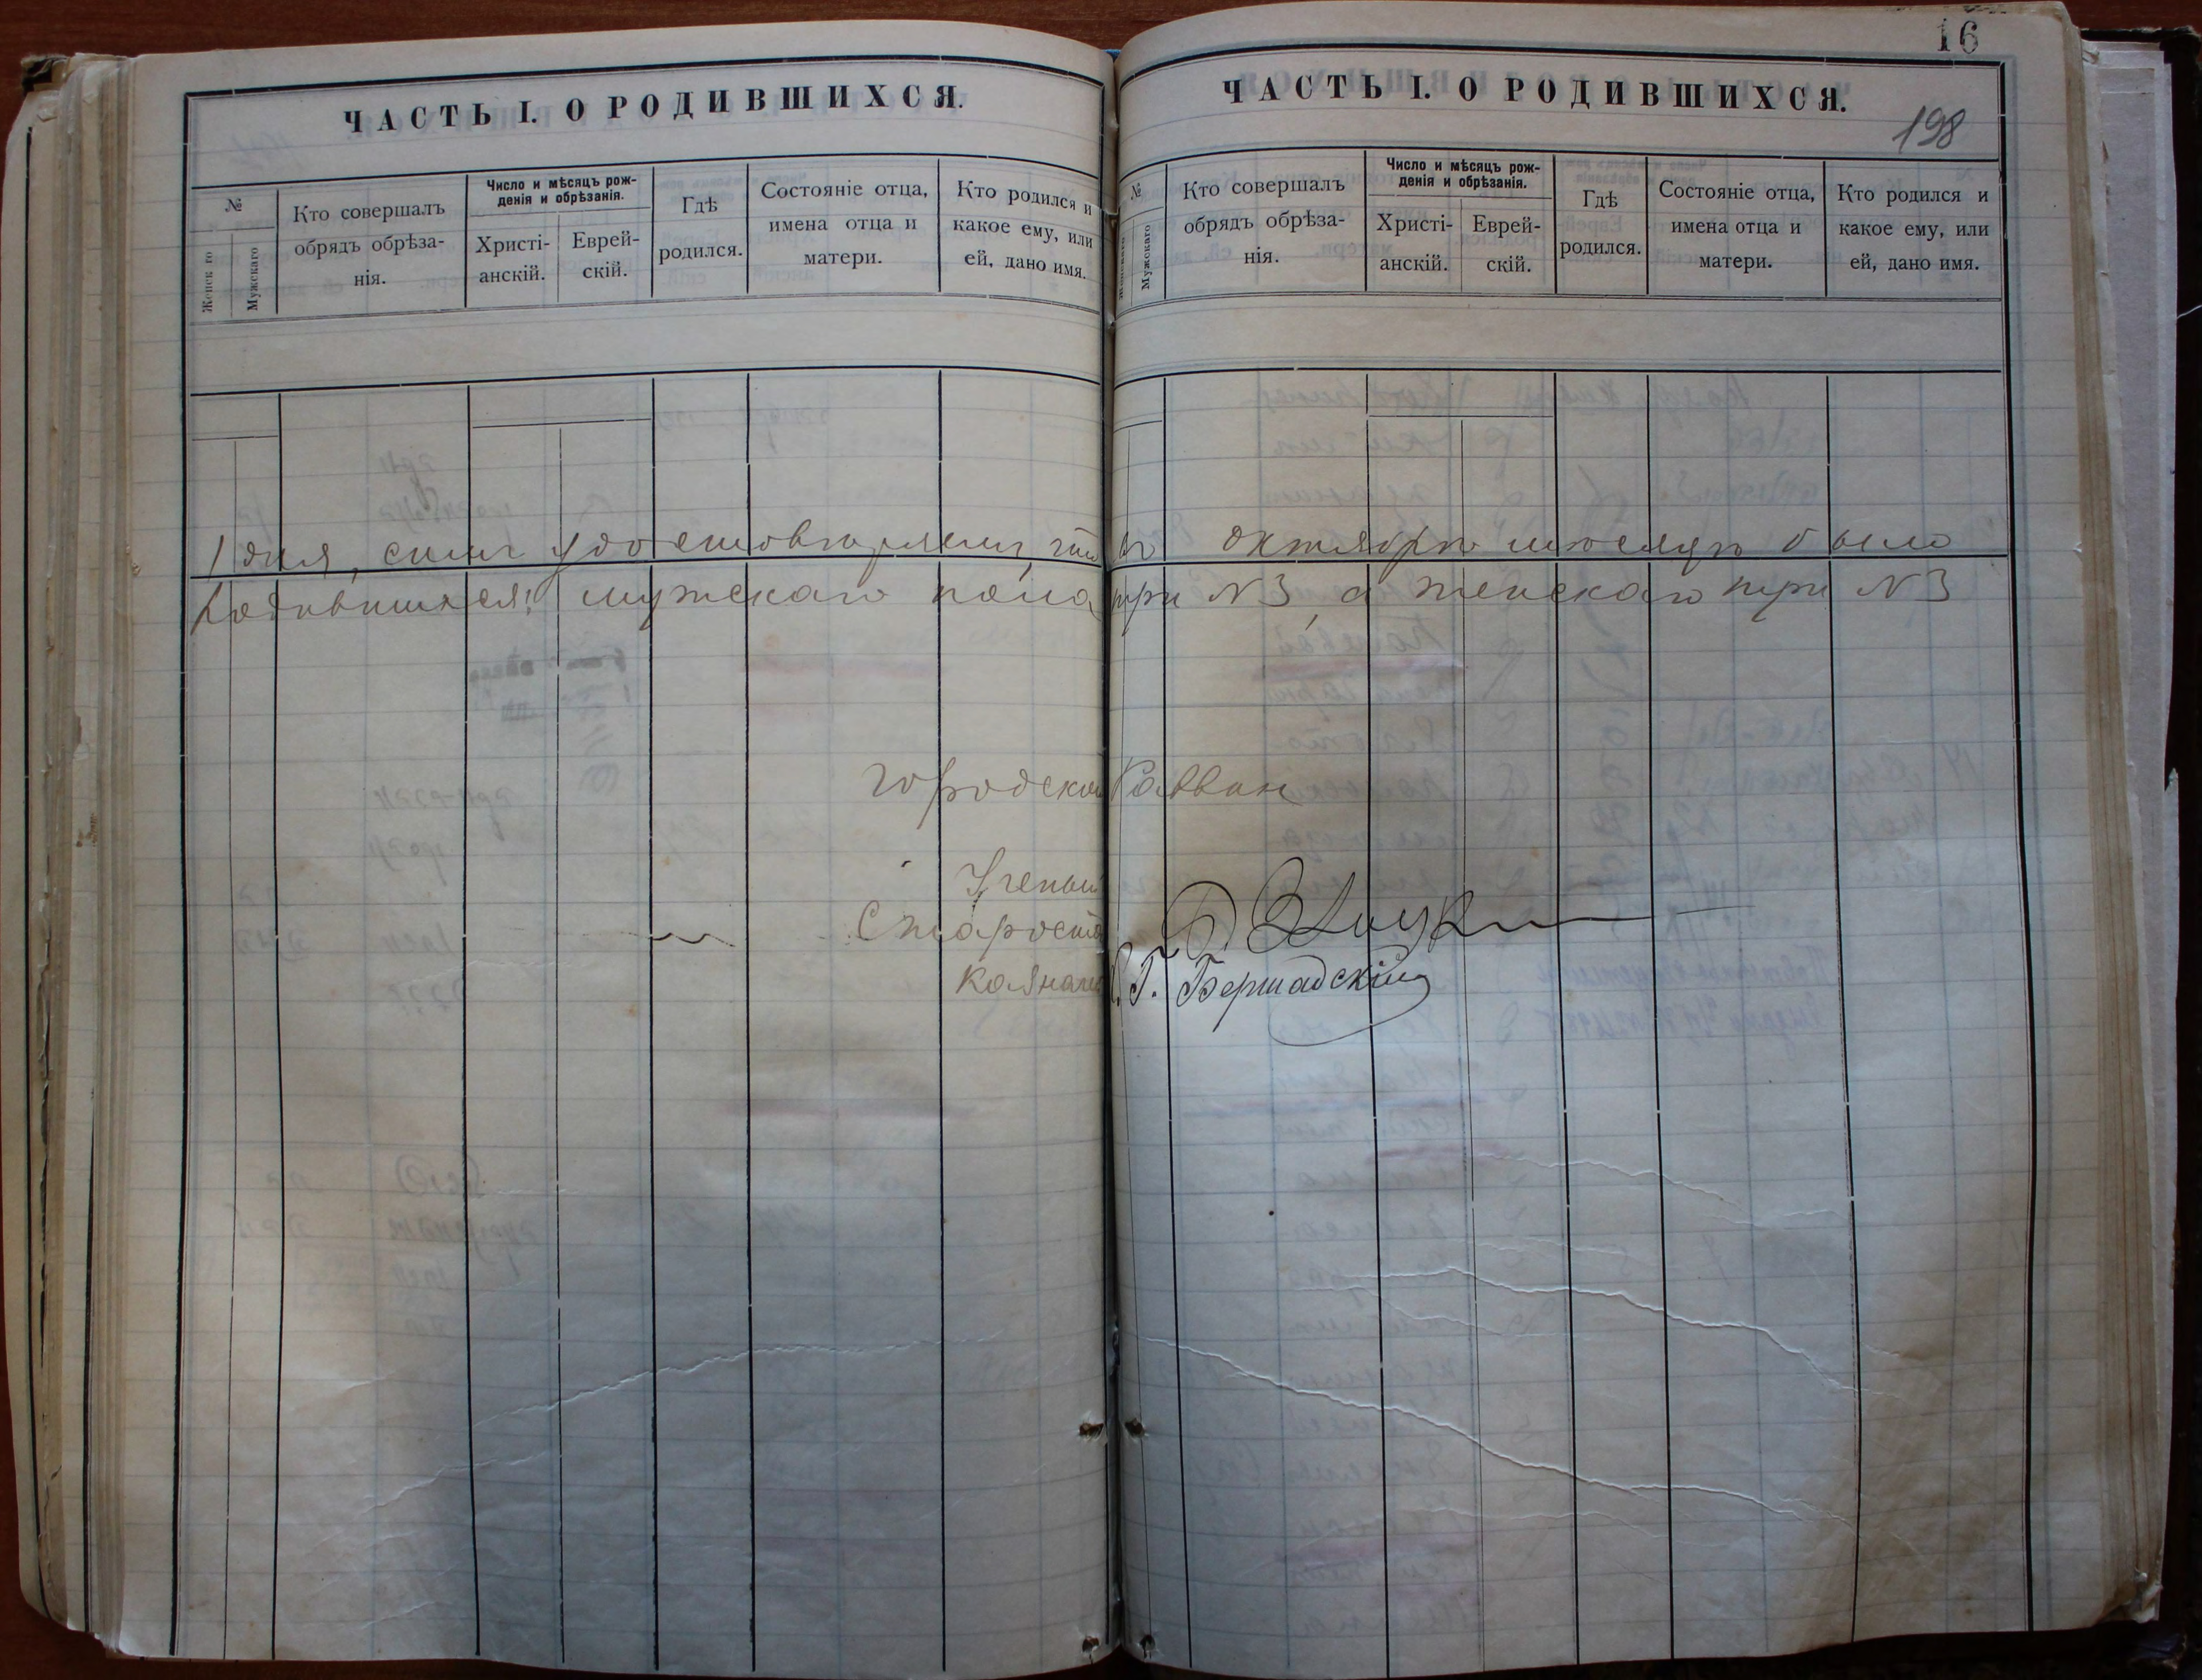 16
198
ЧАСТЬ I. О РОДИВШИХСЯ.
№
Женскаго
Мужскаго
Кто совершалъ
обрядъ обрѣза-
нія.
Число и мѣсяцъ рож-
денія и обрѣзанія.
Христі-
анскій.
Еврей-
скій.
Гдѣ
родился.
Состояніе отца,
имена отца и
матери.
Кто родился и
какое ему, или
ей, дано имя.
ЧАСТЬ I. О РОДИВШИХСЯ.
№
Женскаго
Мужскаго
Кто совершалъ
обрядъ обрѣза-
нія.
Число и мѣсяцъ рож-
денія и обрѣзанія.
Христі-
анскій.
Еврей-
скій.
Гдѣ
родился.
Состояніе отца,
имена отца и
матери.
Кто родился и
какое ему, или
ей, дано имя.
1 дня, симъ удостовѣряемъ, что въ октябрѣ мѣсяцѣ было
родившихся: мужскаго пола три N 3, а женскаго три N 3
Городской Раввин
Ученый
Староста
Казначей Г. Бершадскій